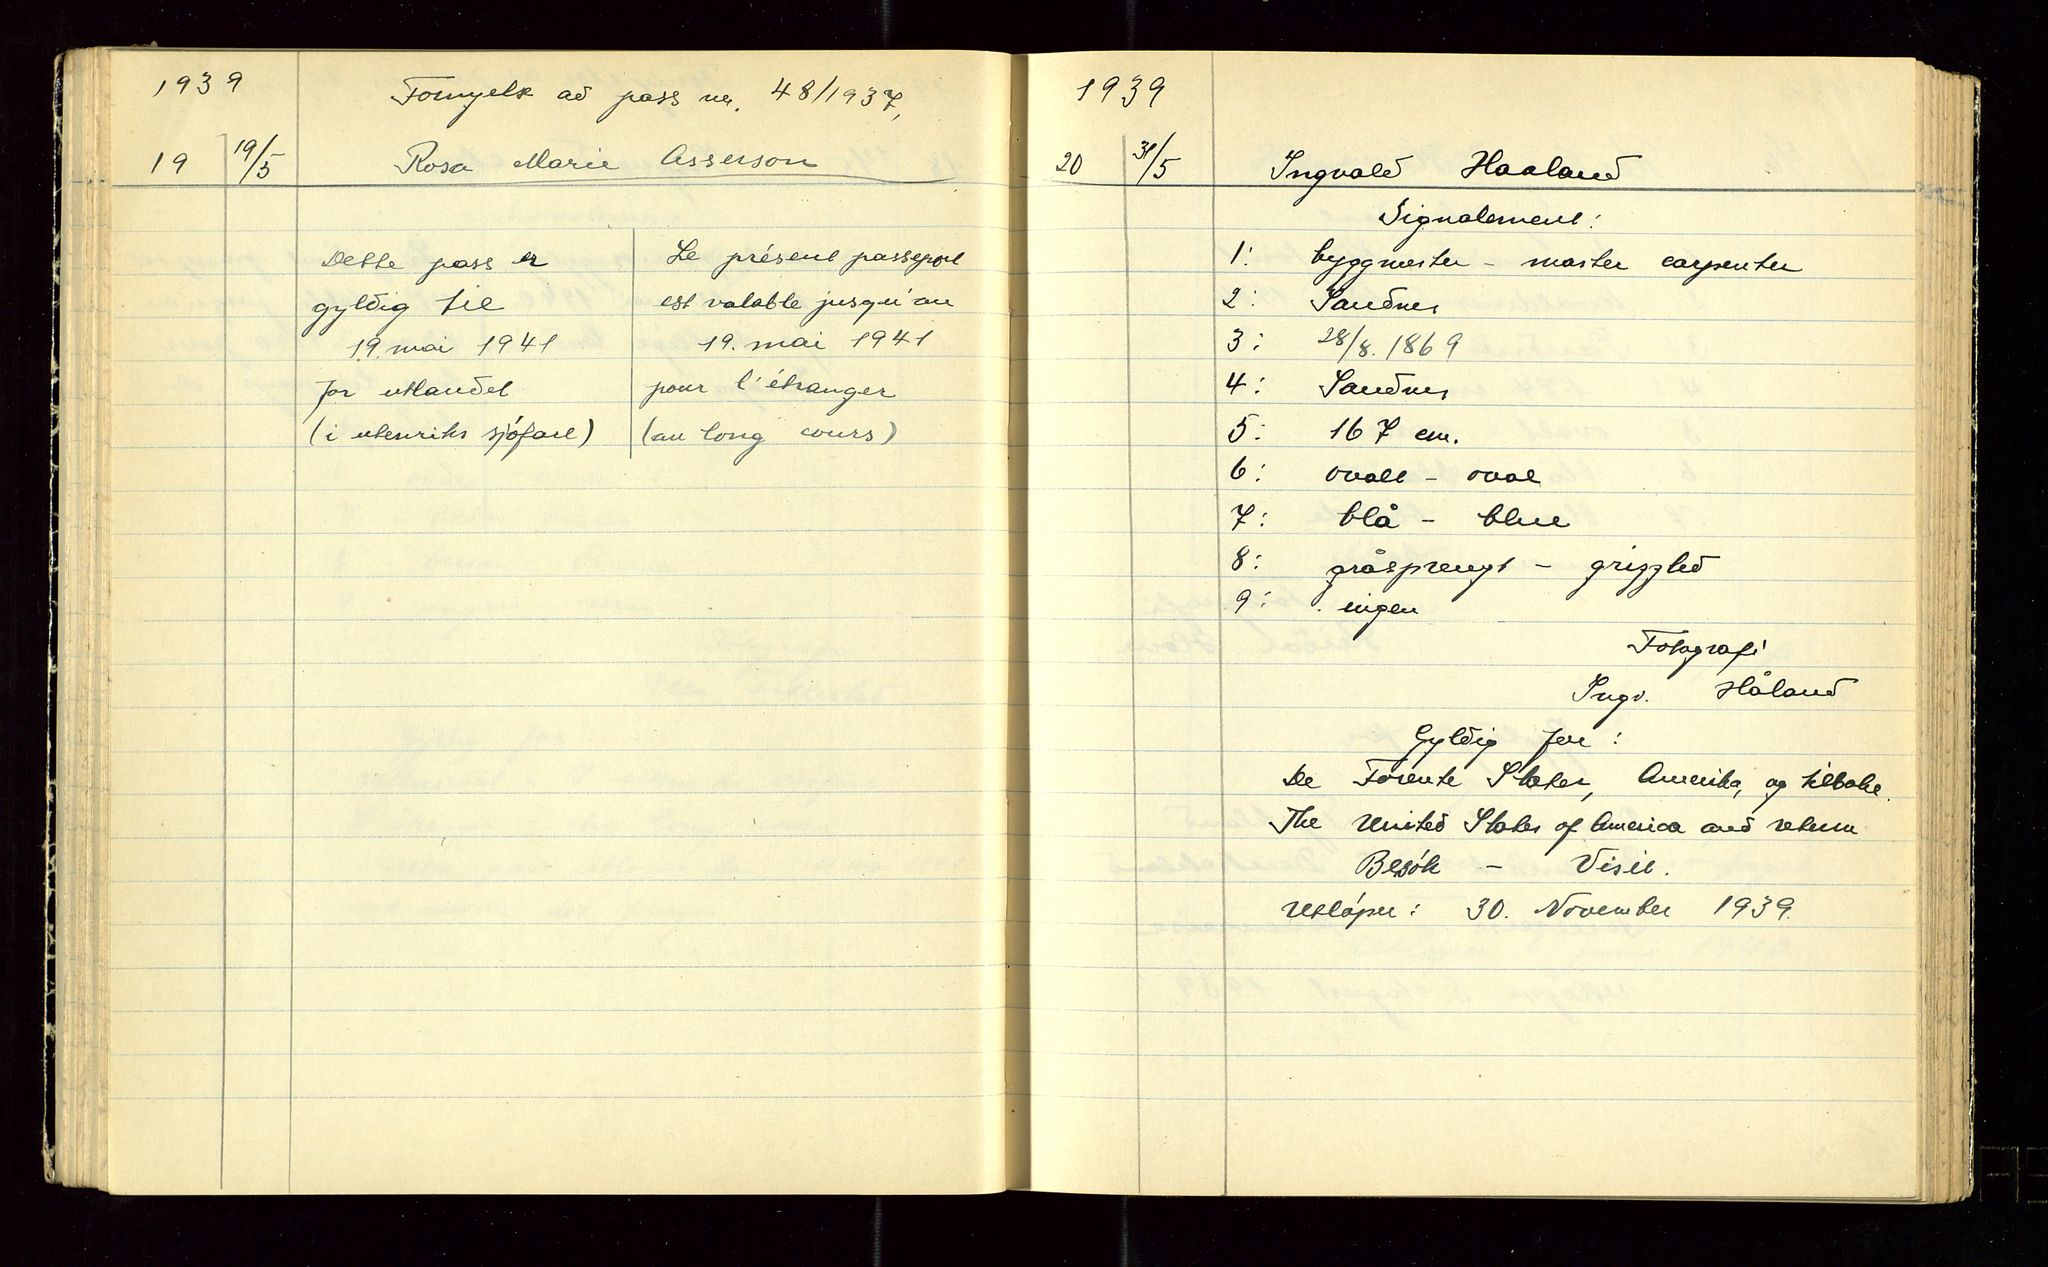 1939
Fornyelse av pass nr. 48/1937,
19 19/5 Rosa Marie Asserson
Dette pass er
gyldig til
19. mai 1941
for utlandet
(i utenriks sjöfart)
Le présent passeport
est valable jusqu'au
19. mai 1941
pour l'étranger
(au long cours)
1939
20 31/5 Ingvald Haaland
Signalement:
1: byggmester - master carpenter
2: Sandnes
3: 28/8. 1869
4: Sandnes
5: 167 cm.
6: ovalt - oval
7: blå - blue
8: gråsprengt - grizzled
9: ingen
Fotografi
Ingv. Håland
Gyldig for:
De Forente Stater, Amerika, og tilbake.
The United States of America and return
Besök - Visit.
Utlöper: 30. November 1939.